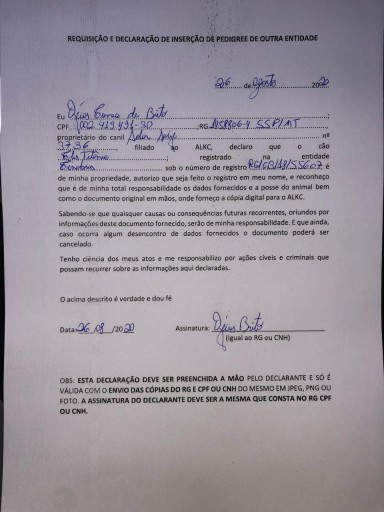 REQUISIÇÃO E DECLARAÇÃO DE INSERÇÃO DE PEDIGREE DE OUTRA ENTIDADE
26 de agosto 2020
Eu de Brito
CPF RG SSP/MT
proprietário do canil nº
3736 filiado ao ALKC, declaro que o cão
registrado na entidade
sob o número de registro e
de minha propriedade, autorizo que seja feito o registro em meu nome, e reconheço
que é de minha total responsabilidade os dados fornecidos e a posse do animal bem
como o documento original em mãos, onde forneço a cópia digital para o ALKC.
Sabendo-se que quaisquer causas ou consequências futuras recorrentes, oriundos por
informações deste documento fornecido, serão de minha responsabilidade. E que ainda,
caso ocorra algum desencontro de dados fornecidos o documento poderá ser
cancelado.
Tenho ciência dos meus atos e me responsabilizo por ações cíveis e criminais que
possam recorrer sobre as informações aqui declaradas.
O acima descrito é verdade e dou fé
Data: 26 08 /2020 Assinatura: Brito
(Igual ao RG ou CNH)
OBS: ESTA DECLARAÇÃO DEVE SER PREENCHIDA A MÃO PELO DECLARANTE E SÓ É
VÁLIDA COM O ENVIO DAS CÓPIAS DO RG E CPF OU CNH DO MESMO EM JPEG, PNG OU
FOTO. A ASSINATURA DO DECLARANTE DEVE SER A MESMA QUE CONSTA NO RG CPF
OU CNH.